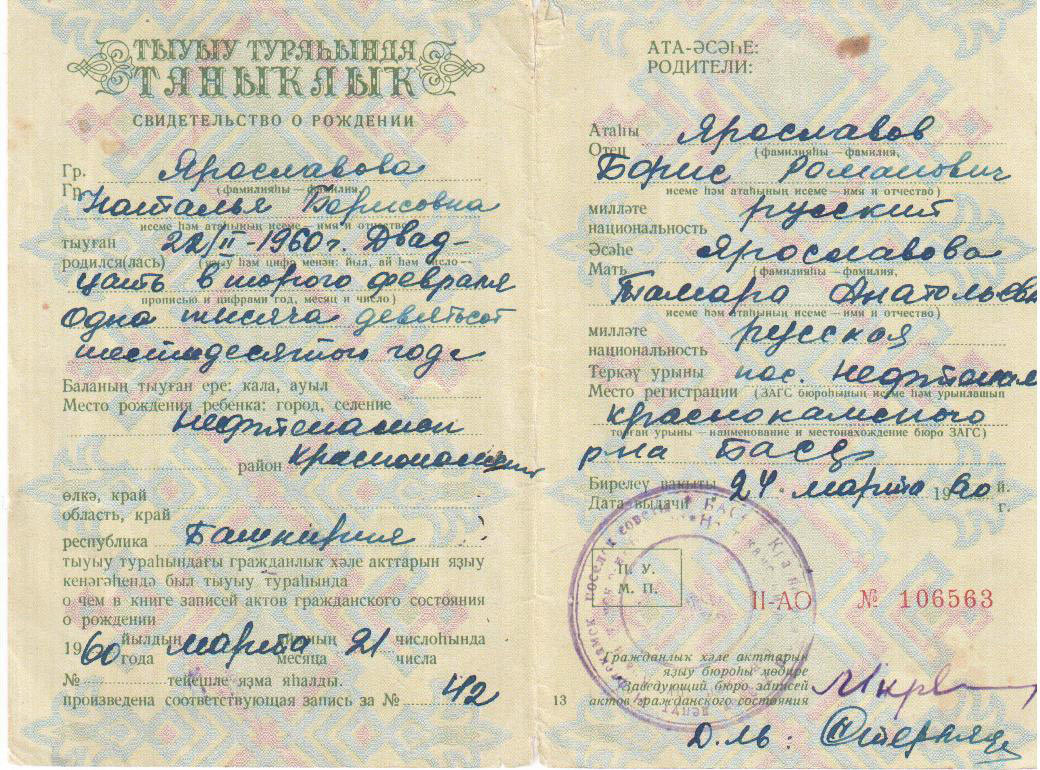 ТЫУЫУ ТУРАҺЫНДА
ТАНЫКЛЫК
СВИДЕТЕЛЬСТВО О РОЖДЕНИИ
Гр. Ярославова
Гр. (фамилияһы — фамилия,
Наталья Борисовна
исеме һәм атаһының исеме — имя и отчество)
тыуған 22/II-1960г. Двад-
родился(лась) (яҙыу һәм цифр менән: йыл, ай һәм число —
цать второго февраля
прописью и цифрами год, месяц и число)
одна тысяча девятьсот
шестидесятого года
Баланың тыуған ере: кала, ауыл
Место рождения ребенка: город, селение
Нефтекамск
район Краснокамский
өлкә, край
область, край
республика Башкирия
тыуыу тураһындағы гражданлык хәле акттарын яҙыу
кенәгәһендә был тыуыу тураһында
о чем в книге записей актов гражданского состояния
о рождении
1960 йылдың марта айының 21 числоһында
года месяца числа
№ тейешле яҙма яһалды.
произведена соответствующая запись за № 42
АТА-ӘСӘҺЕ:
РОДИТЕЛИ:
Атаһы Ярославов
Отец (фамилияһы — фамилия,
Борис Романович
исеме һәм атаһының исеме — имя и отчество)
милләте русский
национальность
Әсәһе Ярославова
Мать (фамилияһы — фамилия,
Тамара Анатольевна
исеме һәм атаһының исеме — имя и отчество)
милләте русская
национальность
Теркәү урыны пос. Нефтекамск
Место регистрации (ЗАГС бюроһының исеме һәм урынлашып
Краснокамского
торған урыны — наименование и местонахождение бюро ЗАГС)
р-на БАССР
Бирелеү вакыты 24 марта 1960 й.
Дата выдачи г.
П. У.
М. П.
II-АО № 106563
Гражданлык хәле акттарын
яҙыу бюроһы мөдире
Заведующий бюро записей
актов гражданского состояния
13
Д-ль: